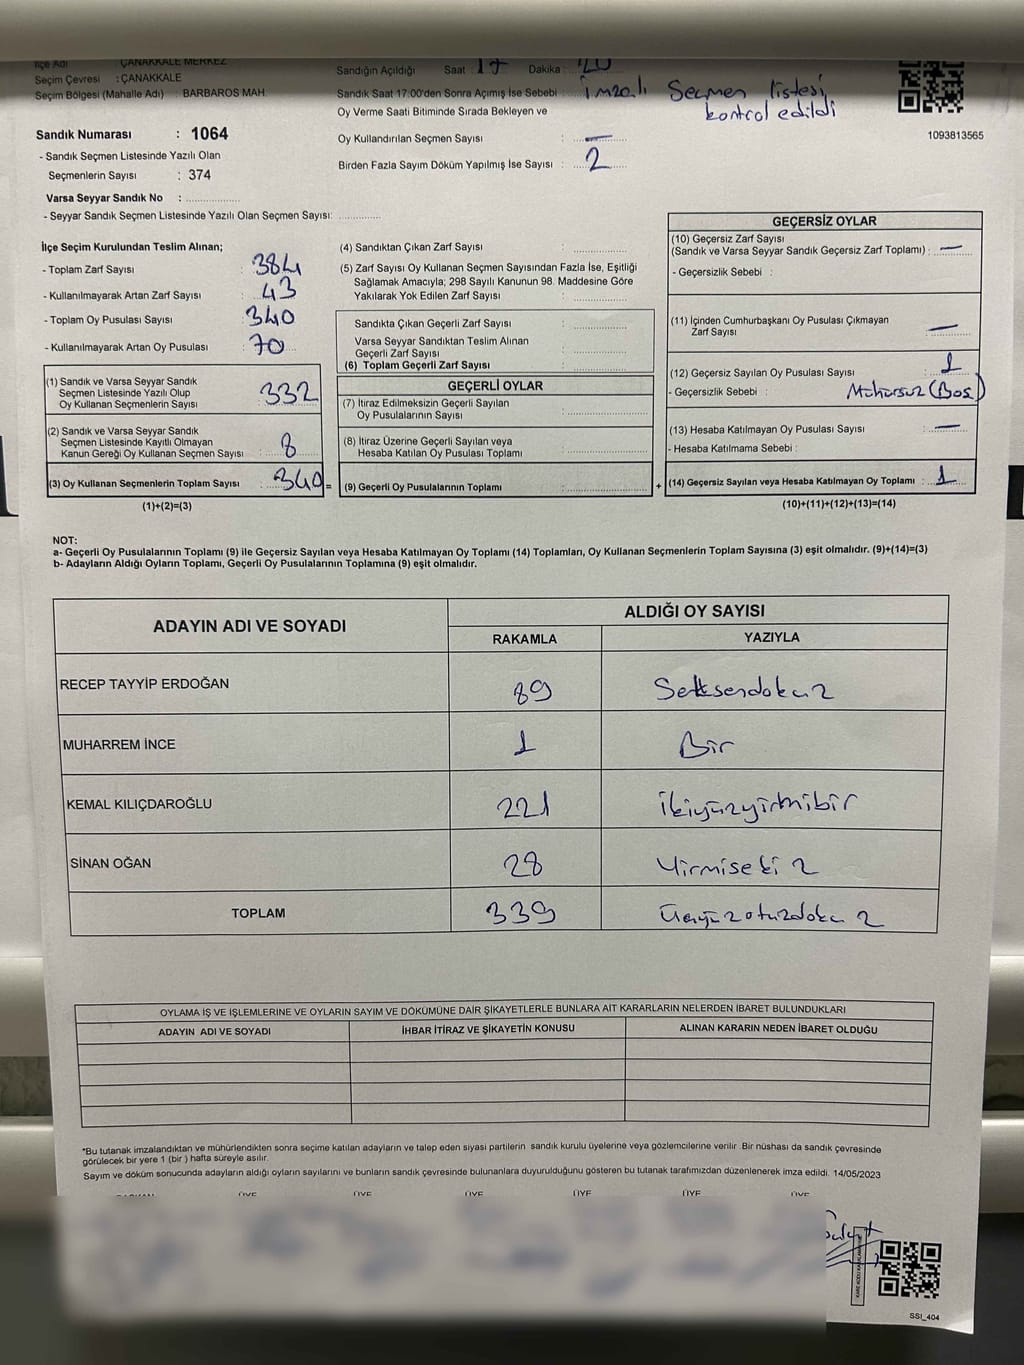 İlçe Adı : ÇANAKKALE MERKEZ
Seçim Çevresi : ÇANAKKALE
Seçim Bölgesi (Mahalle Adı) : BARBAROS MAH.
Sandık Numarası : 1064
- Sandık Seçmen Listesinde Yazılı Olan
Seçmenlerin Sayısı : 374
Varsa Seyyar Sandık No :
- Seyyar Sandık Seçmen Listesinde Yazılı Olan Seçmen Sayısı:
Sandığın Açıldığı Saat : 17 Dakika :
Sandık Saat 17.00'den Sonra Açılmış İse Sebebi : İmzalı Seçmen listesi
kontrol edildi
Oy Verme Saati Bitiminde Sırada Bekleyen ve
Oy Kullandırılan Seçmen Sayısı : —
Birden Fazla Sayım Döküm Yapılmış İse Sayısı : 2
1093813565
İlçe Seçim Kurulundan Teslim Alınan;
- Toplam Zarf Sayısı : 384
- Kullanılmayarak Artan Zarf Sayısı : 43
- Toplam Oy Pusulası Sayısı : 340
- Kullanılmayarak Artan Oy Pusulası : 70
(1) Sandık ve Varsa Seyyar Sandık
Seçmen Listesinde Yazılı Olup
Oy Kullanan Seçmenlerin Sayısı : 332
(2) Sandık ve Varsa Seyyar Sandık
Seçmen Listesinde Kayıtlı Olmayan
Kanun Gereği Oy Kullanan Seçmen Sayısı : 8
(3) Oy Kullanan Seçmenlerin Toplam Sayısı : 340 =
(1)+(2)=(3)
(4) Sandıktan Çıkan Zarf Sayısı :
(5) Zarf Sayısı Oy Kullanan Seçmen Sayısından Fazla İse, Eşitliği
Sağlamak Amacıyla; 298 Sayılı Kanunun 98. Maddesine Göre
Yakılarak Yok Edilen Zarf Sayısı :
Sandıkta Çıkan Geçerli Zarf Sayısı :
Varsa Seyyar Sandıktan Teslim Alınan
Geçerli Zarf Sayısı :
(6) Toplam Geçerli Zarf Sayısı :
GEÇERLİ OYLAR
(7) İtiraz Edilmeksizin Geçerli Sayılan
Oy Pusulalarının Sayısı :
(8) İtiraz Üzerine Geçerli Sayılan veya
Hesaba Katılan Oy Pusulası Toplamı :
(9) Geçerli Oy Pusulalarının Toplamı : +
GEÇERSİZ OYLAR
(10) Geçersiz Zarf Sayısı
(Sandık ve Varsa Seyyar Sandık Geçersiz Zarf Toplamı) : —
- Geçersizlik Sebebi :
(11) İçinden Cumhurbaşkanı Oy Pusulası Çıkmayan
Zarf Sayısı : —
(12) Geçersiz Sayılan Oy Pusulası Sayısı : 1
- Geçersizlik Sebebi : Mühürsüz (Boş)
(13) Hesaba Katılmayan Oy Pusulası Sayısı : —
- Hesaba Katılmama Sebebi :
(14) Geçersiz Sayılan veya Hesaba Katılmayan Oy Toplamı : 1
(10)+(11)+(12)+(13)=(14)
NOT:
a- Geçerli Oy Pusulalarının Toplamı (9) ile Geçersiz Sayılan veya Hesaba Katılmayan Oy Toplamı (14) Toplamları, Oy Kullanan Seçmenlerin Toplam Sayısına (3) eşit olmalıdır. (9)+(14)=(3)
b- Adayların Aldığı Oyların Toplamı, Geçerli Oy Pusulalarının Toplamına (9) eşit olmalıdır.
ADAYIN ADI VE SOYADI
ALDIĞI OY SAYISI
RAKAMLA YAZIYLA
RECEP TAYYİP ERDOĞAN 89 Seksendokuz
MUHARREM İNCE 1 Bir
KEMAL KILIÇDAROĞLU 221 İkiyüzyirmibir
SİNAN OĞAN 28 Yirmisekiz
TOPLAM 339 Üçyüzotuzdokuz
OYLAMA İŞ VE İŞLEMLERİNE VE OYLARIN SAYIM VE DÖKÜMÜNE DAİR ŞİKAYETLERLE BUNLARA AİT KARARLARIN NELERDEN İBARET BULUNDUKLARI
ADAYIN ADI VE SOYADI İHBAR İTİRAZ VE ŞİKAYETİN KONUSU ALINAN KARARIN NEDEN İBARET OLDUĞU
*Bu tutanak imzalandıktan ve mühürlendikten sonra seçime katılan adayların ve talep eden siyasi partilerin sandık kurulu üyelerine veya gözlemcilerine verilir. Bir nüshası da sandık çevresinde
görülecek bir yere 1 (bir) hafta süreyle asılır.
Sayım ve döküm sonucunda adayların aldığı oyların sayılarını ve bunların sandık çevresinde bulunanlara duyurulduğunu gösteren bu tutanak tarafımızdan düzenlenerek imza edildi. 14/05/2023
BAŞKAN ÜYE ÜYE ÜYE ÜYE ÜYE ÜYE
SSI_404